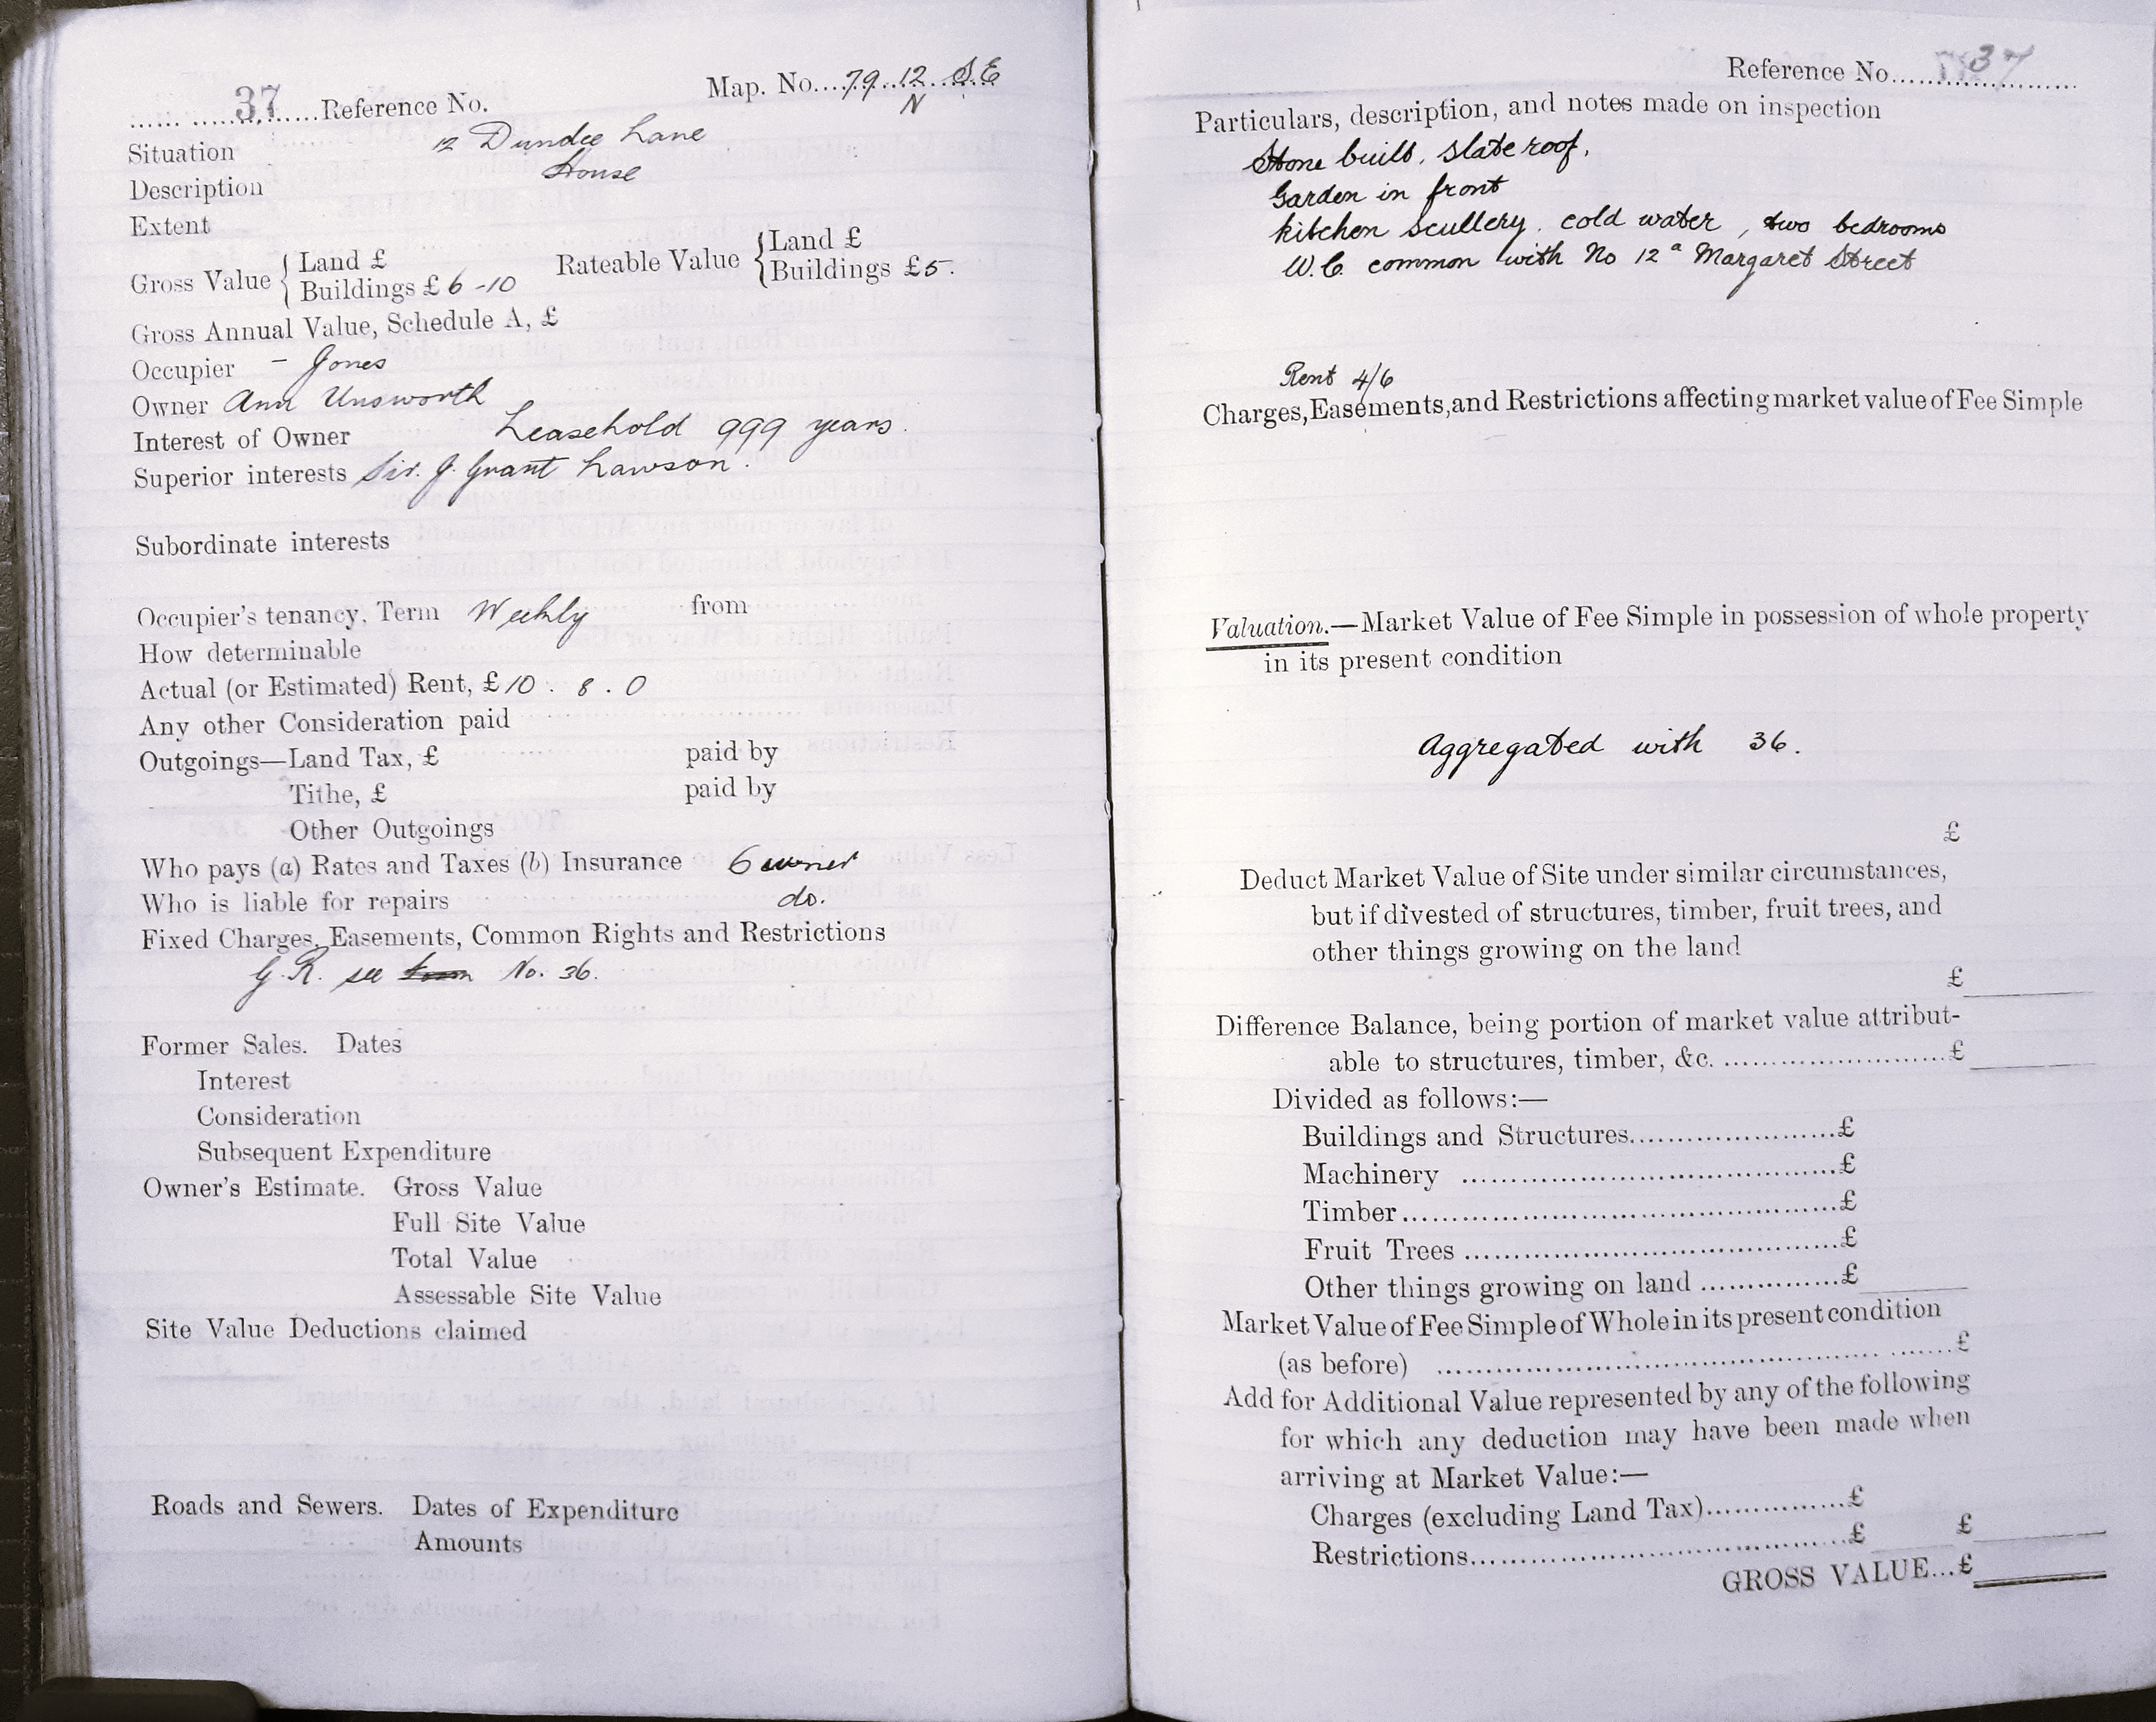 37 Reference No. Map. No. 79.12 S.E
N
Situation 12 Dundee Lane
Description House
Extent
Gross Value { Land £
Buildings £ 6-10
Rateable Value { Land £
Buildings £5.
Gross Annual Value, Schedule A, £
Occupier - Jones
Owner Ann Unsworth
Interest of Owner Leasehold 999 years.
Superior interests Sir. J. Grant Lawson.
Subordinate interests
Occupier's tenancy, Term Weekly from
How determinable
Actual (or Estimated) Rent, £10 . 8 . 0
Any other Consideration paid
Outgoings—Land Tax, £ paid by
Tithe, £ paid by
Other Outgoings
Who pays (a) Rates and Taxes (b) Insurance owner
Who is liable for repairs do.
Fixed Charges, Easements, Common Rights and Restrictions
G.R. see No. 36.
Former Sales. Dates
Interest
Consideration
Subsequent Expenditure
Owner's Estimate. Gross Value
Full Site Value
Total Value
Assessable Site Value
Site Value Deductions claimed
Roads and Sewers. Dates of Expenditure
Amounts
Reference No. 37
Particulars, description, and notes made on inspection
Stone built, slate roof,
Garden in front
kitchen scullery. cold water, two bedrooms
W.C. common with No 12a Margaret Street
Rent 4/6
Charges, Easements, and Restrictions affecting market value of Fee Simple
Valuation.—Market Value of Fee Simple in possession of whole property
in its present condition
Aggregated with 36.
£
Deduct Market Value of Site under similar circumstances,
but if divested of structures, timber, fruit trees, and
other things growing on the land
£
Difference Balance, being portion of market value attribut-
able to structures, timber, &c. £
Divided as follows:—
Buildings and Structures £
Machinery £
Timber £
Fruit Trees £
Other things growing on land £
Market Value of Fee Simple of Whole in its present condition
(as before) £
Add for Additional Value represented by any of the following
for which any deduction may have been made when
arriving at Market Value:—
Charges (excluding Land Tax) £
Restrictions £ £
GROSS VALUE... £